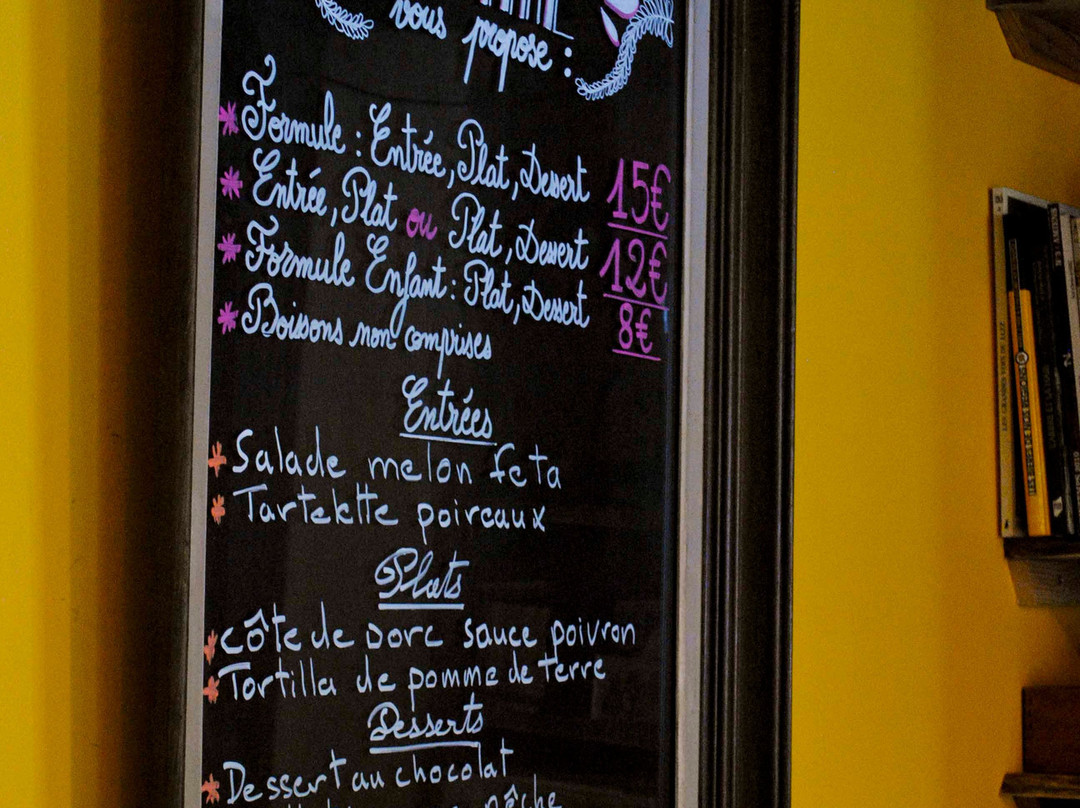 vous propose :
* Formule : Entrée, Plat, Dessert 15€
* Entrée, Plat ou Plat, Dessert 12€
* Formule Enfant : Plat, Dessert 8€
* Boissons non comprises
Entrées
* Salade melon feta
* Tartelette poireaux
Plats
* Côte de porc sauce poivron
* Tortilla de pomme de terre
Desserts
* Dessert au chocolat
pêche